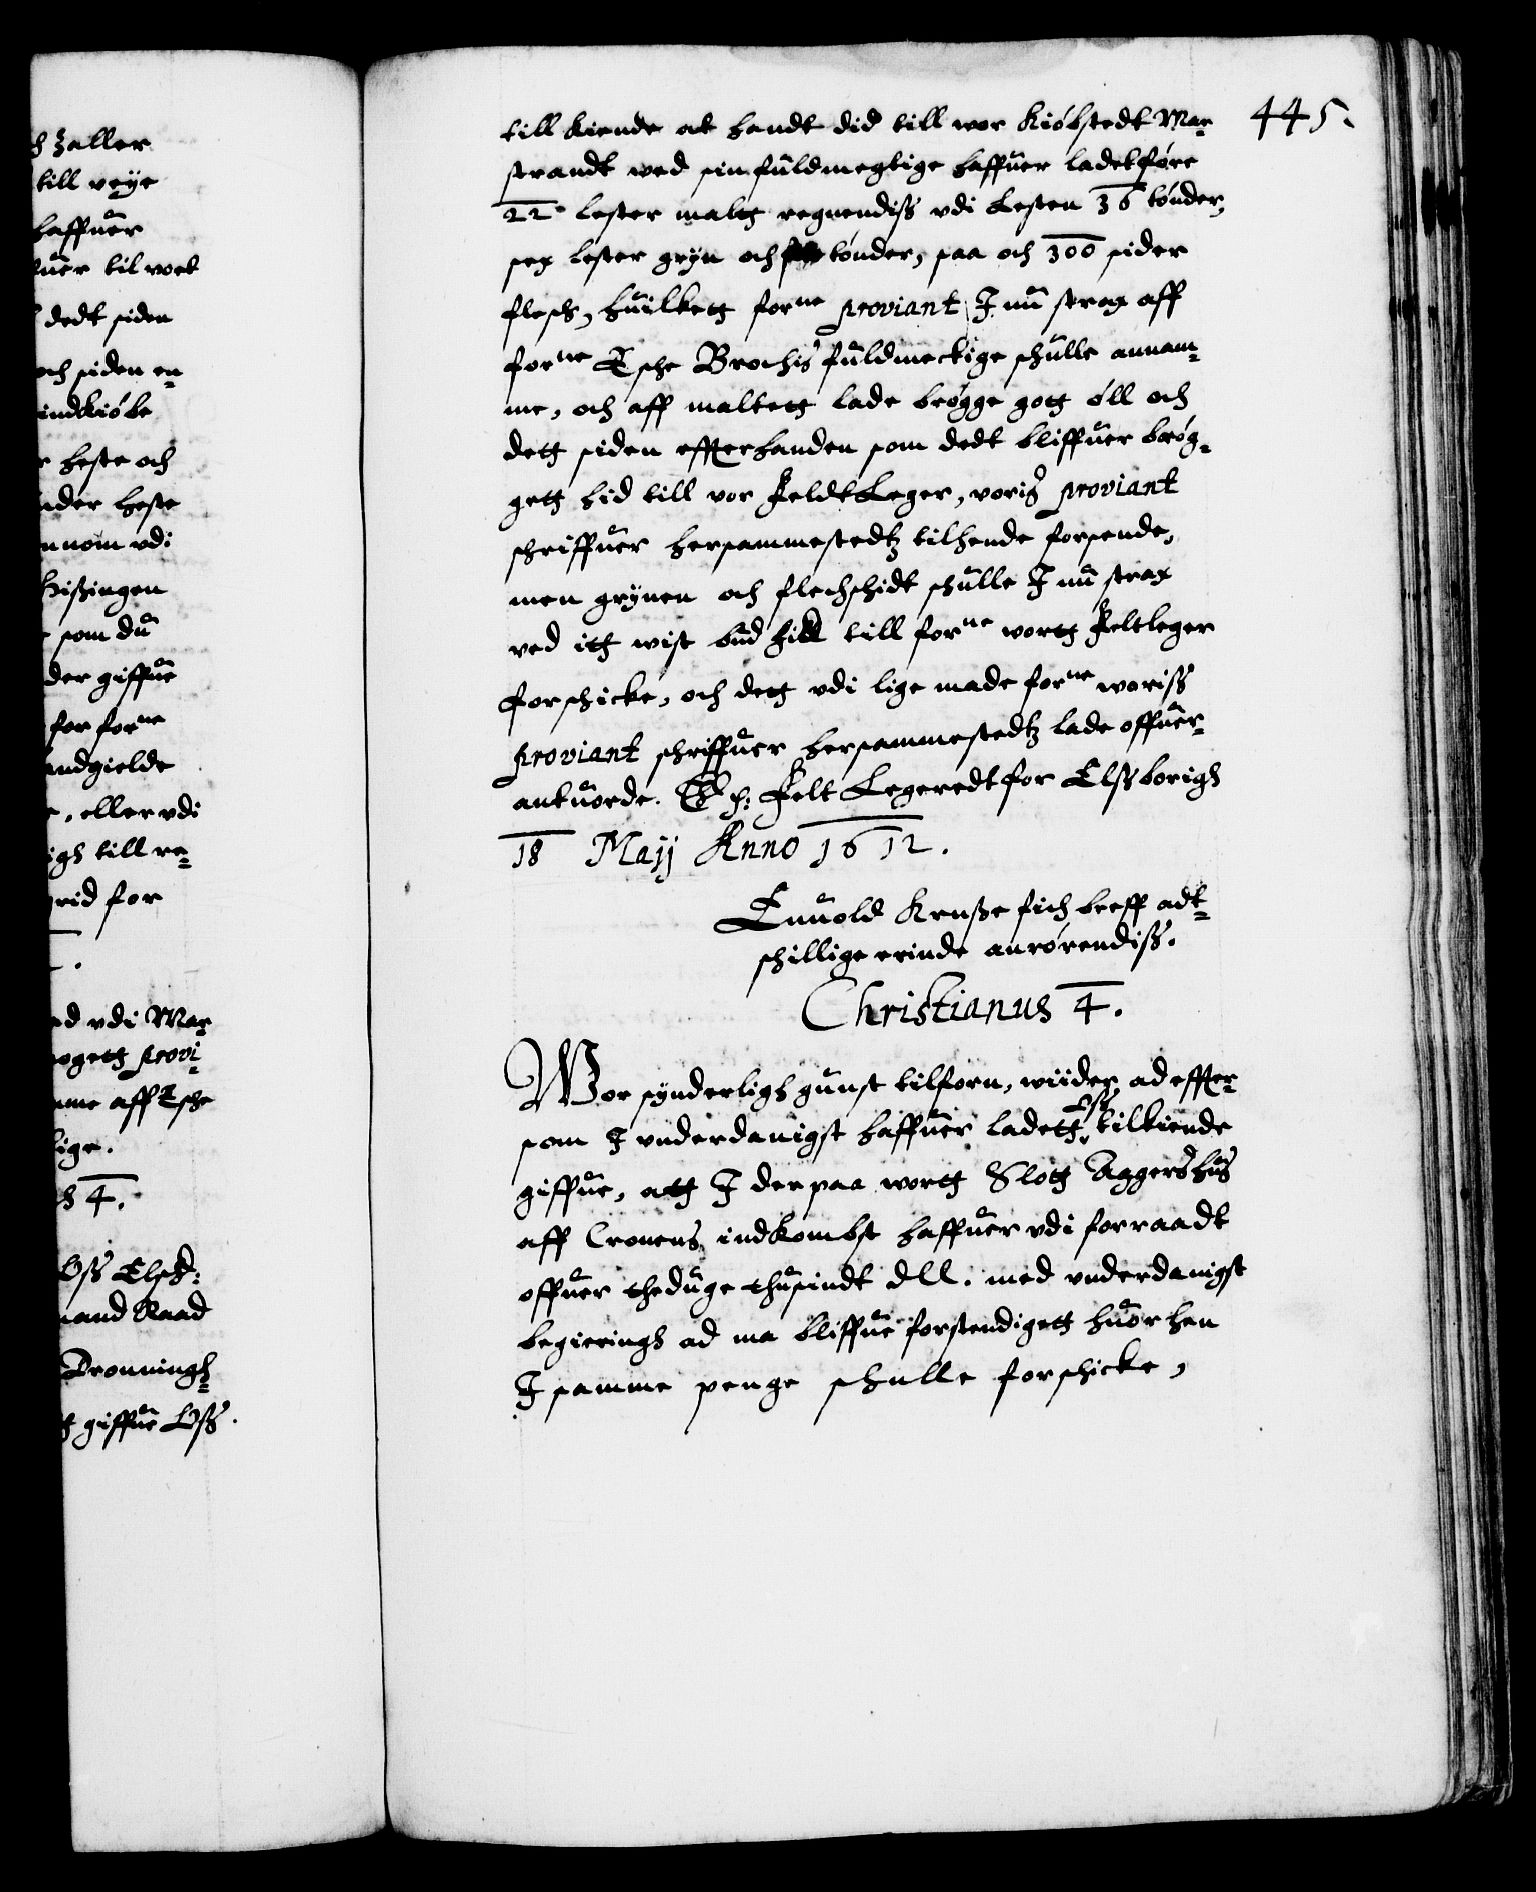 h Zaller
till veye
haffuer
fuer til voet
dedt siden
och siden en¬
indkiöbe
r heste och
nder heste
nnom vdi
Hißingen
som du
der giffue
for forne
andgielde
e, eller vdi
igh till re¬
rid for
ed vdi Mar¬
nogett provi¬
nme aff Esche
lige.
h 4.
Oss Elsk:
mand Raad
Dronningh¬
tt giffue Oss.
445.
till kiende at handt did till wor Kiöbstedt Mar¬
strandt wed sin fuldmegtige haffuer ladet före
22 lester maltt regnendiss vdi Lesten 36 tönder,
sex lester gryn och tönder, saa och 300 sider
flesch, huilkett forne proviant I nu strax aff
forne Esche Brochis fuldmectige schulle annam¬
me, och aff maltett lade brögge gott öll och
dett siden effterhanden som dedt bliffuer brög¬
gett hid till vor FeldtLeger, voris proviant
schriffuer hersammestedtz tilhende forsende,
men grynen och fleschsidt schulle I nu strax
ved itt wist bud hid till forne wortt Feltleger
forschicke, och dett vdi lige made forne woriss
proviant schriffuer hersammestedtz lade offuer¬
antuorde. E h: Felt Legeredt for Elssborigh
18 Maij Anno 1612.
Enuold Kruße fich breff adt¬
schillige erinde anrörendiss.
Christianus 4.
Wor synderligh gunst tilforn, wiider, ad effter¬
som I vnderdanigst haffuer ladett Oss tilkiende
giffue, att I der paa wortt Slott Aggershus
aff Cronens indkombst haffuer vdi forraadt
offuer theduge thusindt dll. med vnderdanigst
begieringh ad ma bliffue forstendigett huor hen
I samme penge schulle forschicke,